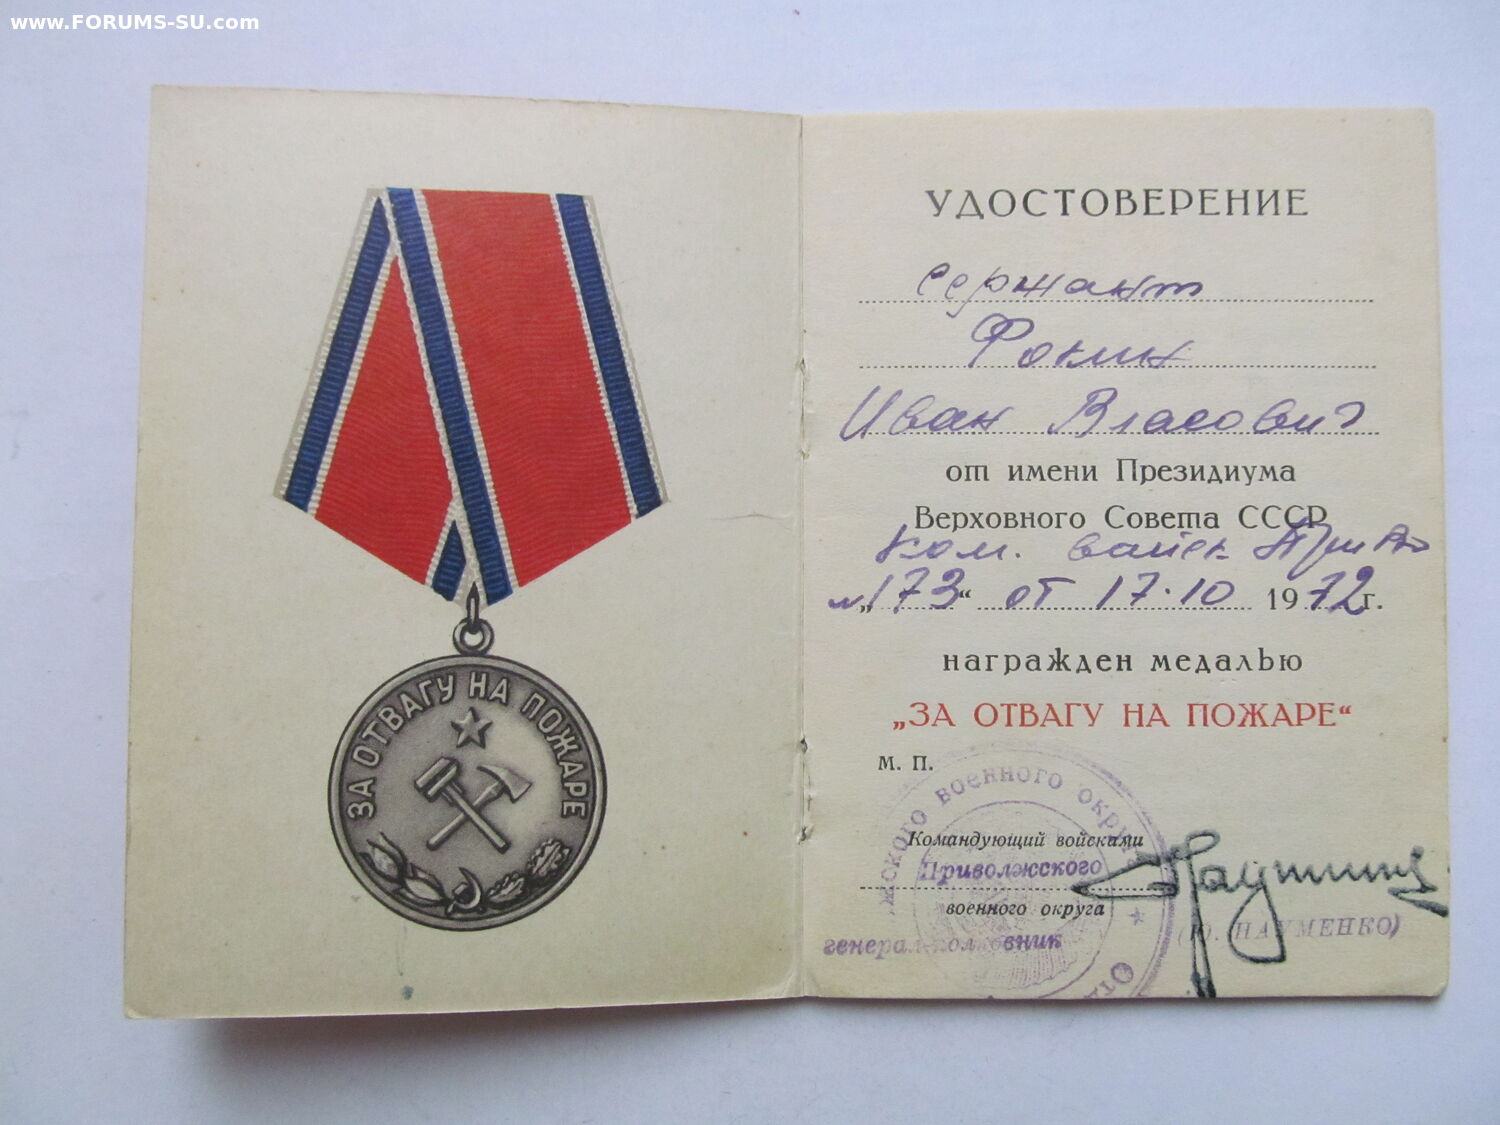 www.FORUMS-SU.com
ЗА ОТВАГУ НА ПОЖАРЕ
УДОСТОВЕРЕНИЕ
сержант
Фокин
Иван Власович
от имени Президиума
Верховного Совета СССР
ком. войск ПриВО
№ „173“ от 17.10 1972 г.
награжден медалью
„ЗА ОТВАГУ НА ПОЖАРЕ“
м. п.
жского военного округа
Командующий войсками
Приволжского
военного округа
генерал-полковник
(Ю. НАУМЕНКО)